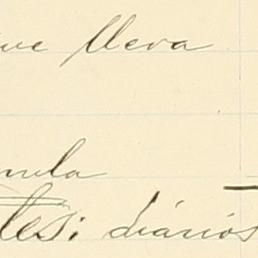 ive lleva
nula
tes: diários